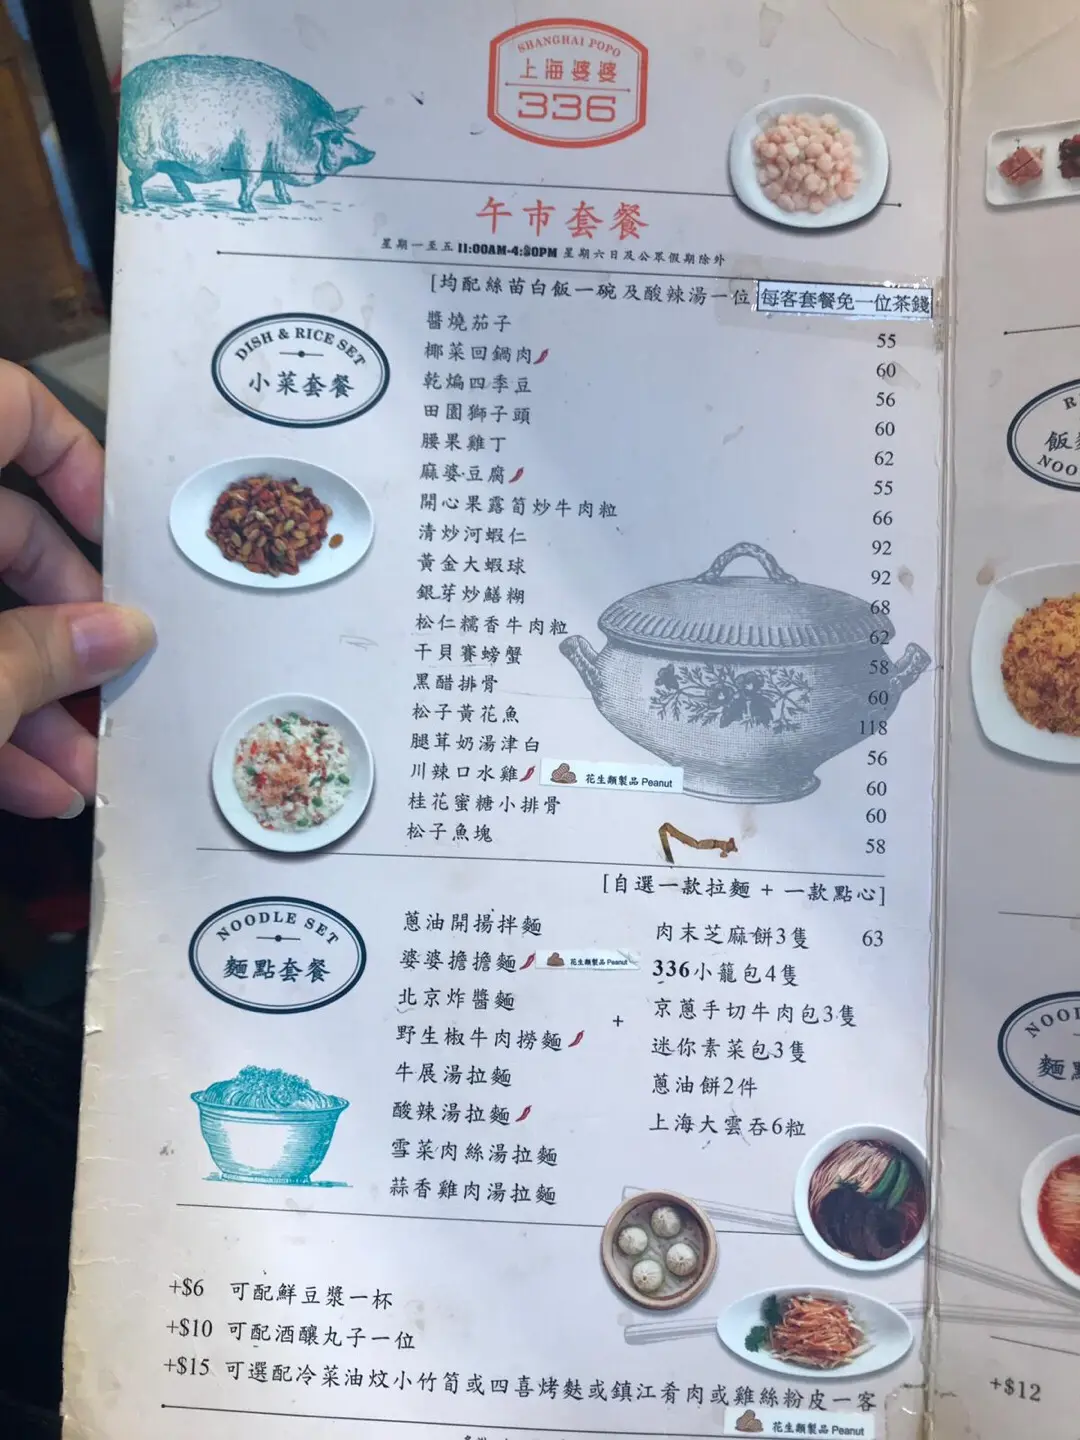 SHANGHAI POPO
上海婆婆
336
午市套餐
星期一至五 11:00AM-4:30PM 星期六日及公眾假期除外
[均配絲苗白飯一碗及酸辣湯一位 每客套餐免一位茶錢
DISH & RICE SET
小菜套餐
醬燒茄子 55
椰菜回鍋肉 60
乾煸四季豆 56
田園獅子頭 60
腰果雞丁 62
麻婆豆腐 55
開心果露筍炒牛肉粒 66
清炒河蝦仁 92
黃金大蝦球 92
銀芽炒鱔糊 68
松仁糯香牛肉粒 62
干貝賽螃蟹 58
黑醋排骨 60
松子黃花魚 118
腿茸奶湯津白 56
川辣口水雞 花生類製品 Peanut 60
桂花蜜糖小排骨 60
松子魚塊 58
[自選一款拉麵 + 一款點心]
63
NOODLE SET
麵點套餐
蔥油開揚拌麵
婆婆擔擔麵 花生類製品 Peanut
北京炸醬麵
野生椒牛肉撈麵
牛展湯拉麵
酸辣湯拉麵
雪菜肉絲湯拉麵
蒜香雞肉湯拉麵
+
肉末芝麻餅3隻
336小籠包4隻
京蔥手切牛肉包3隻
迷你素菜包3隻
蔥油餅2件
上海大雲吞6粒
+$6 可配鮮豆漿一杯
+$10 可配酒釀丸子一位
+$15 可選配冷菜油炆小竹筍或四喜烤麩或鎮江肴肉或雞絲粉皮一客
花生類製品 Peanut
飯
NOO
NOO
麵
+$12